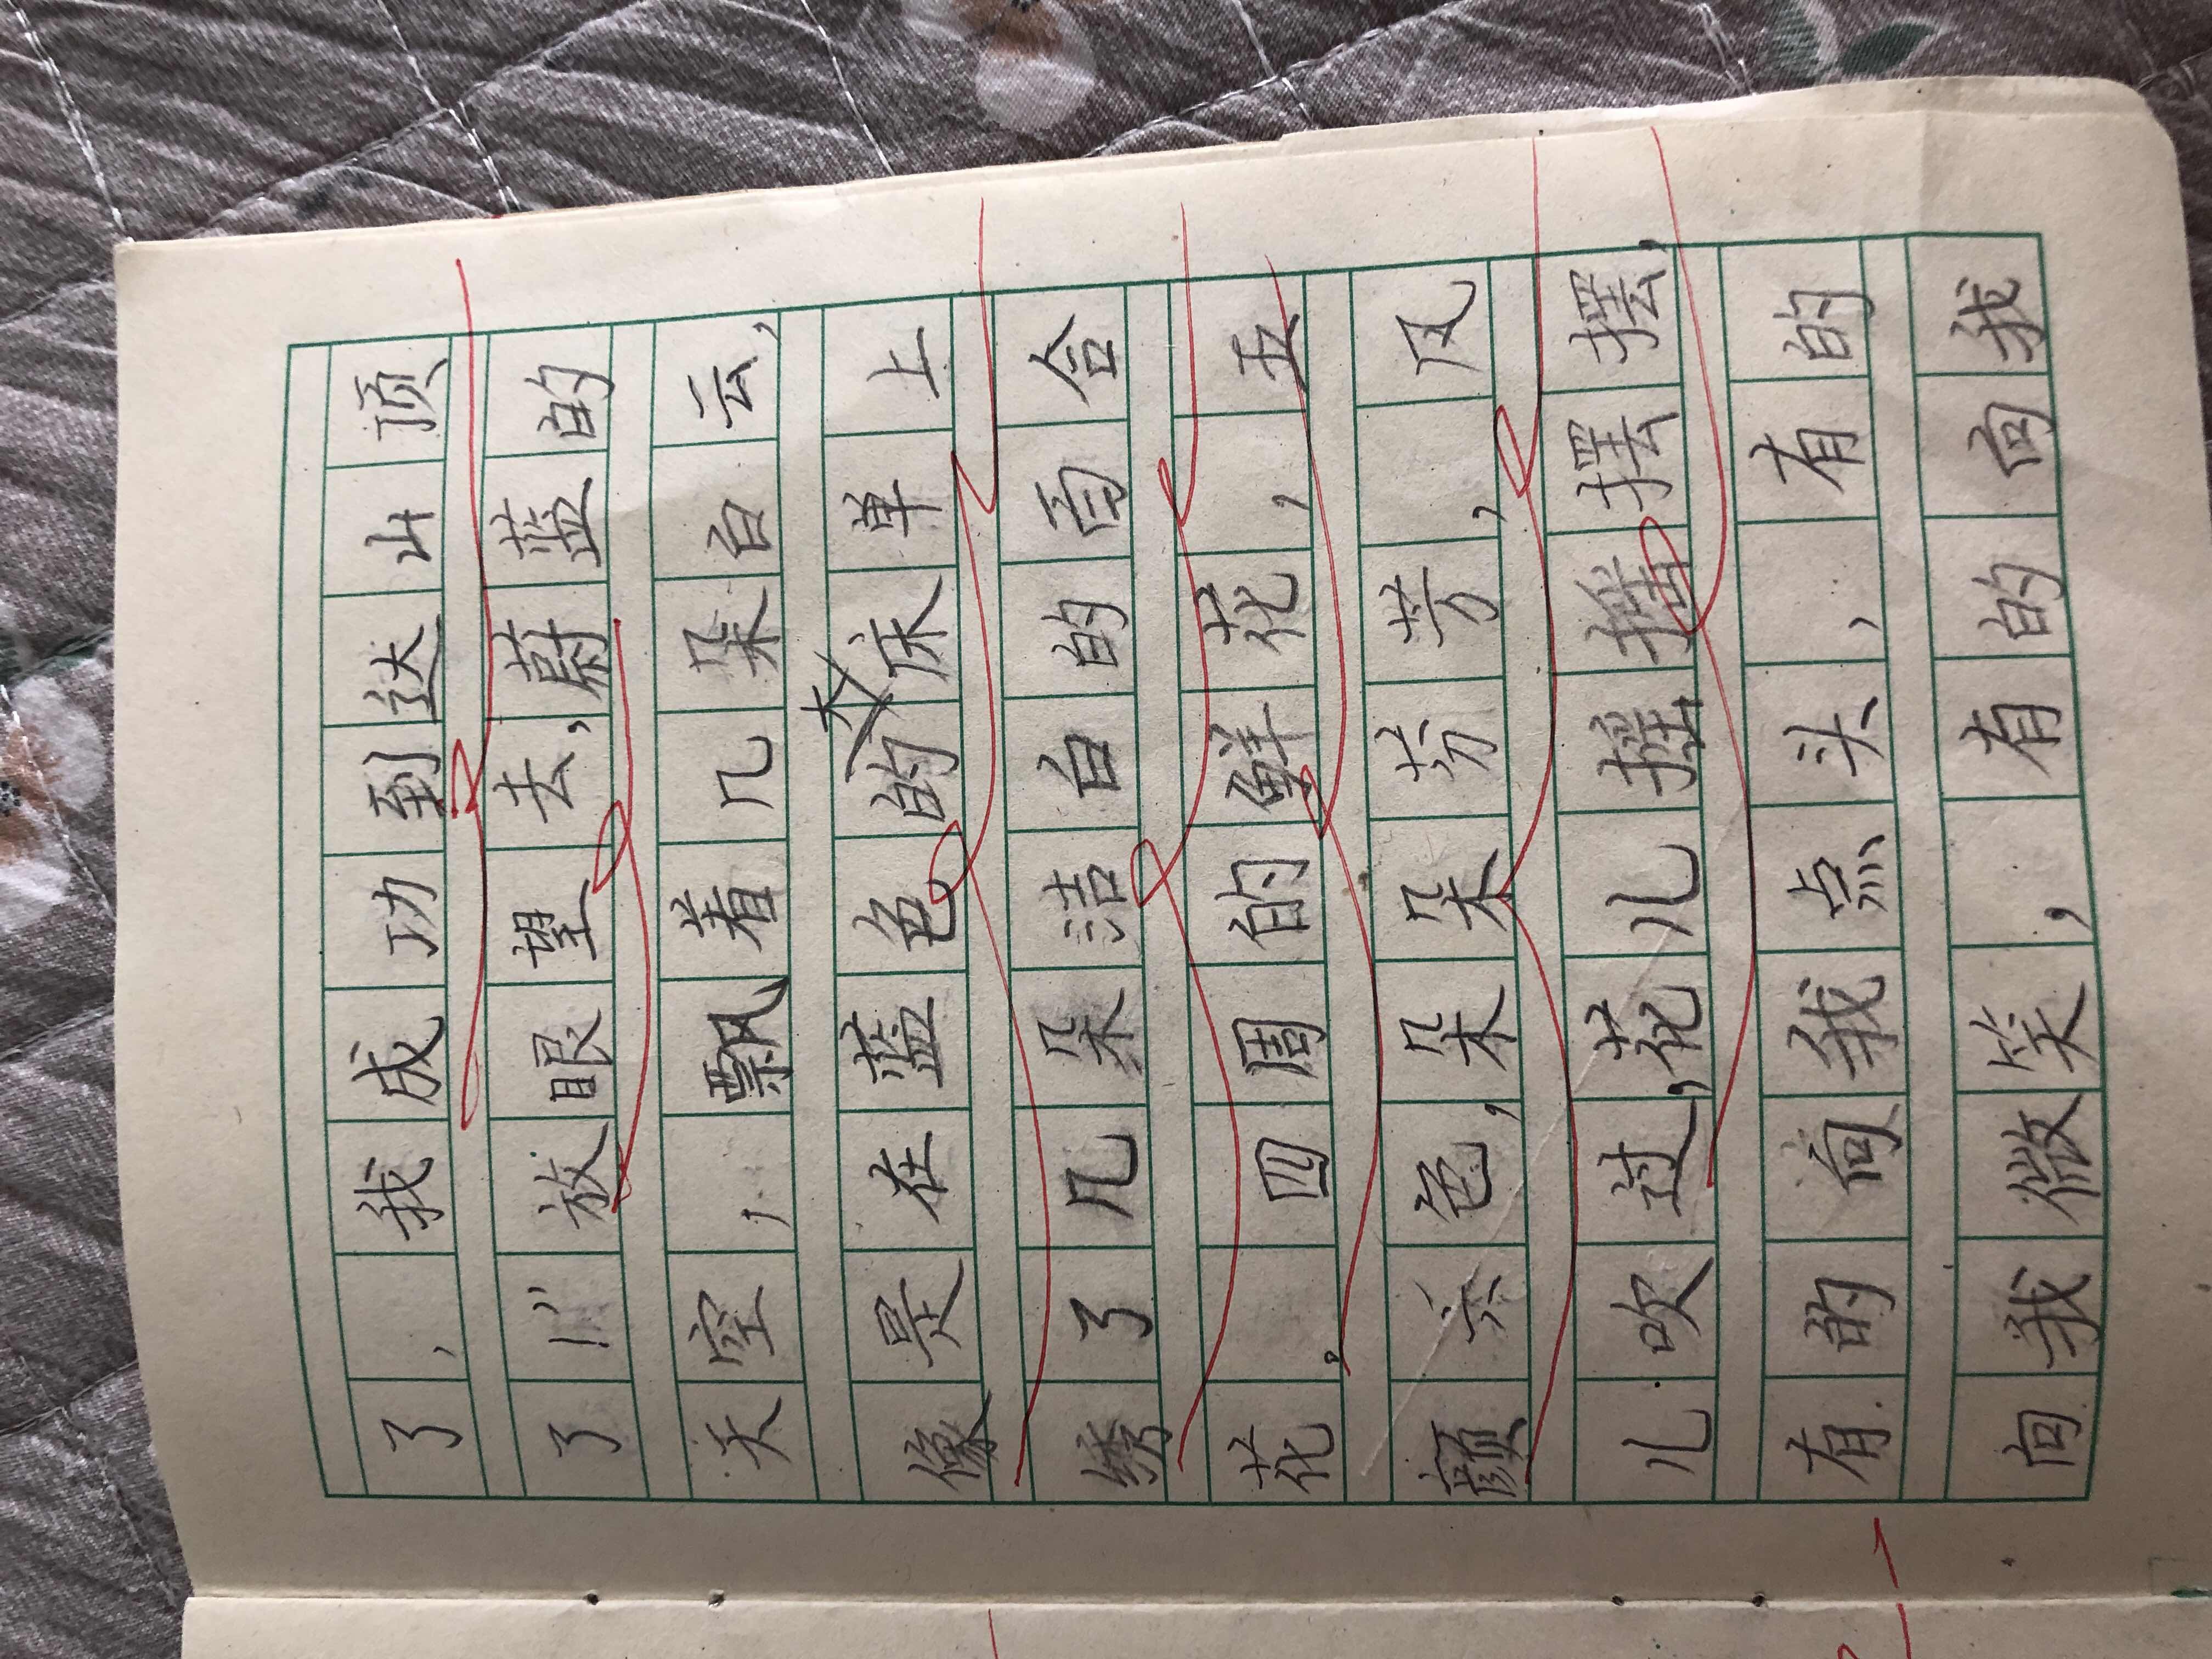 了,我成功到达山顶
了!”放眼望去,蔚蓝的
天空,飘着几朵白云,
像是在蓝色的大床单上
绣了几朵洁白的百合
花。四周的鲜花,五
颜六色,朵朵芬芳,风
儿吹过,花儿摇摇摆摆,
有的向我点头,有的
向我微笑,有的向我